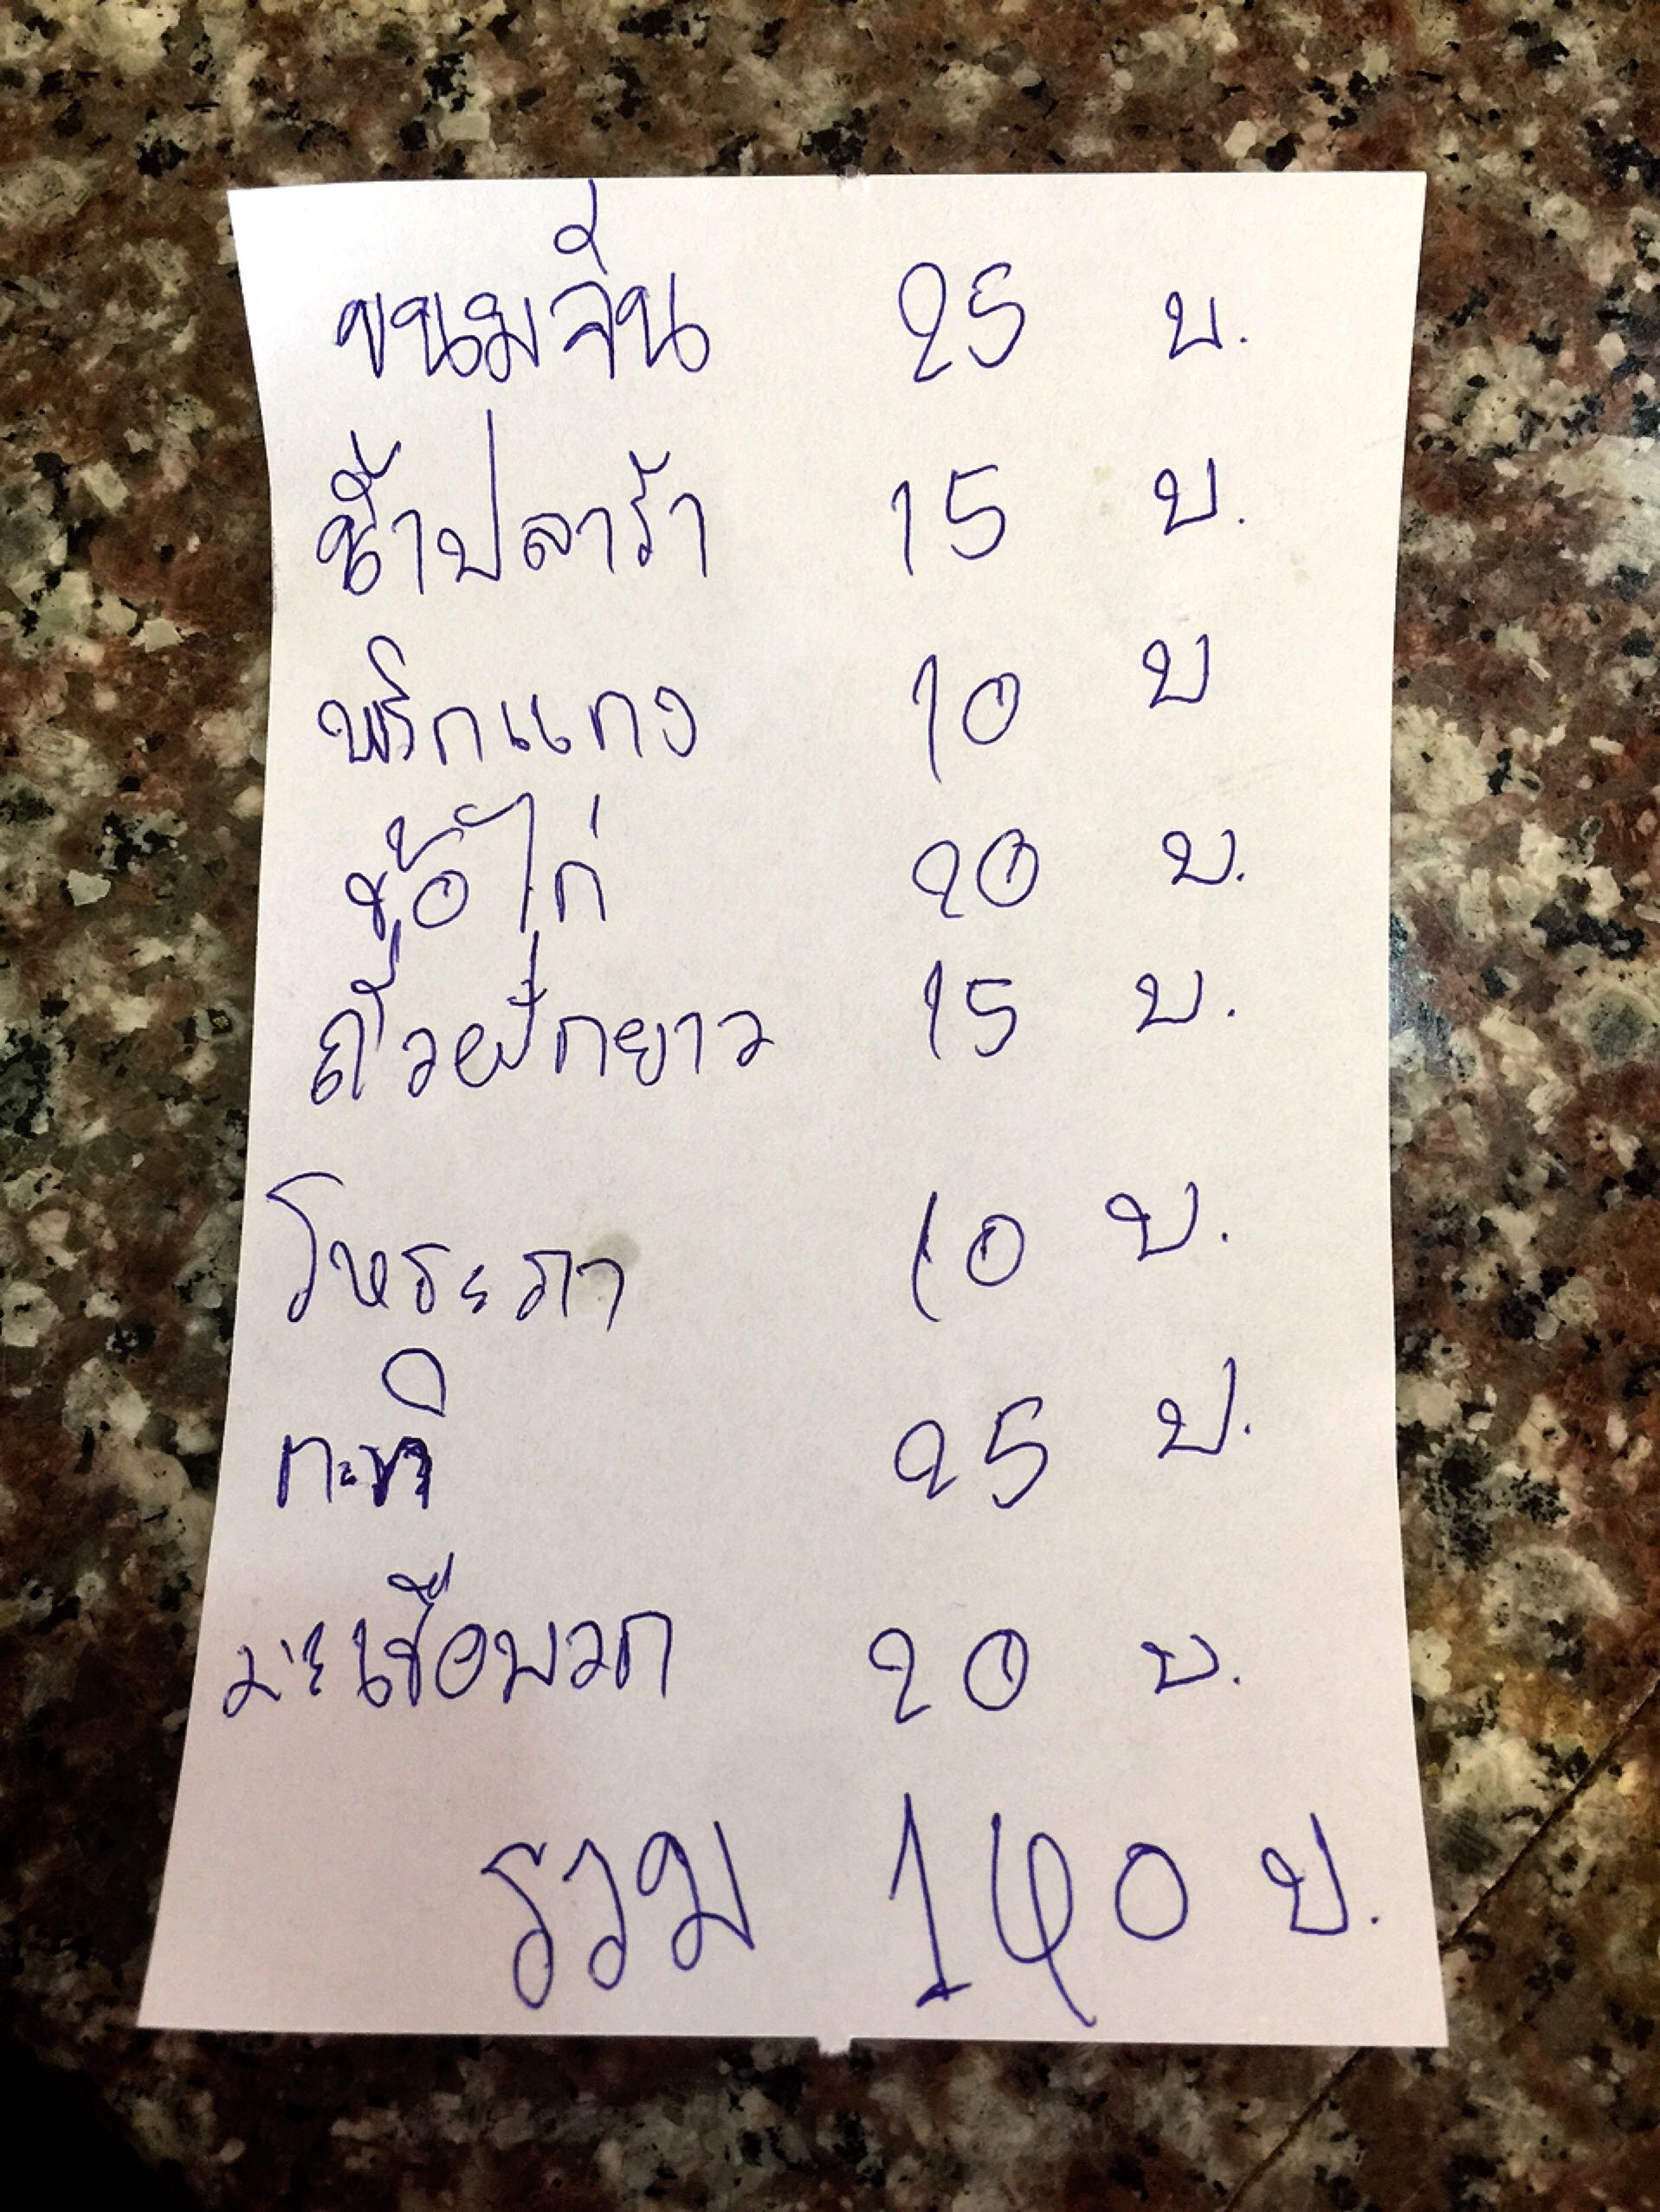 ขนมจีน 25 บ.
น้ำปลาร้า 15 บ.
พริกแกง 10 บ
ข้อไก่ 20 บ.
ถั่วฝักยาว 15 บ.
โหระภา 10 บ.
กะทิ 25 บ.
มะเขือพวก 20 บ.
รวม 140 บ.